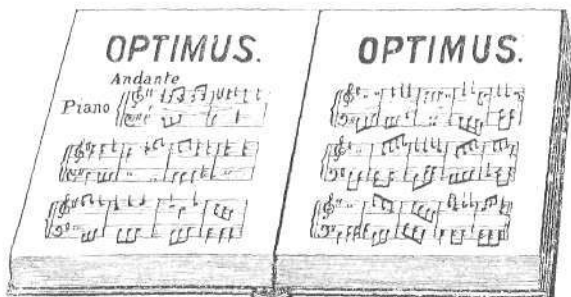 OPTIMUS.
Andante
Piano
OPTIMUS.